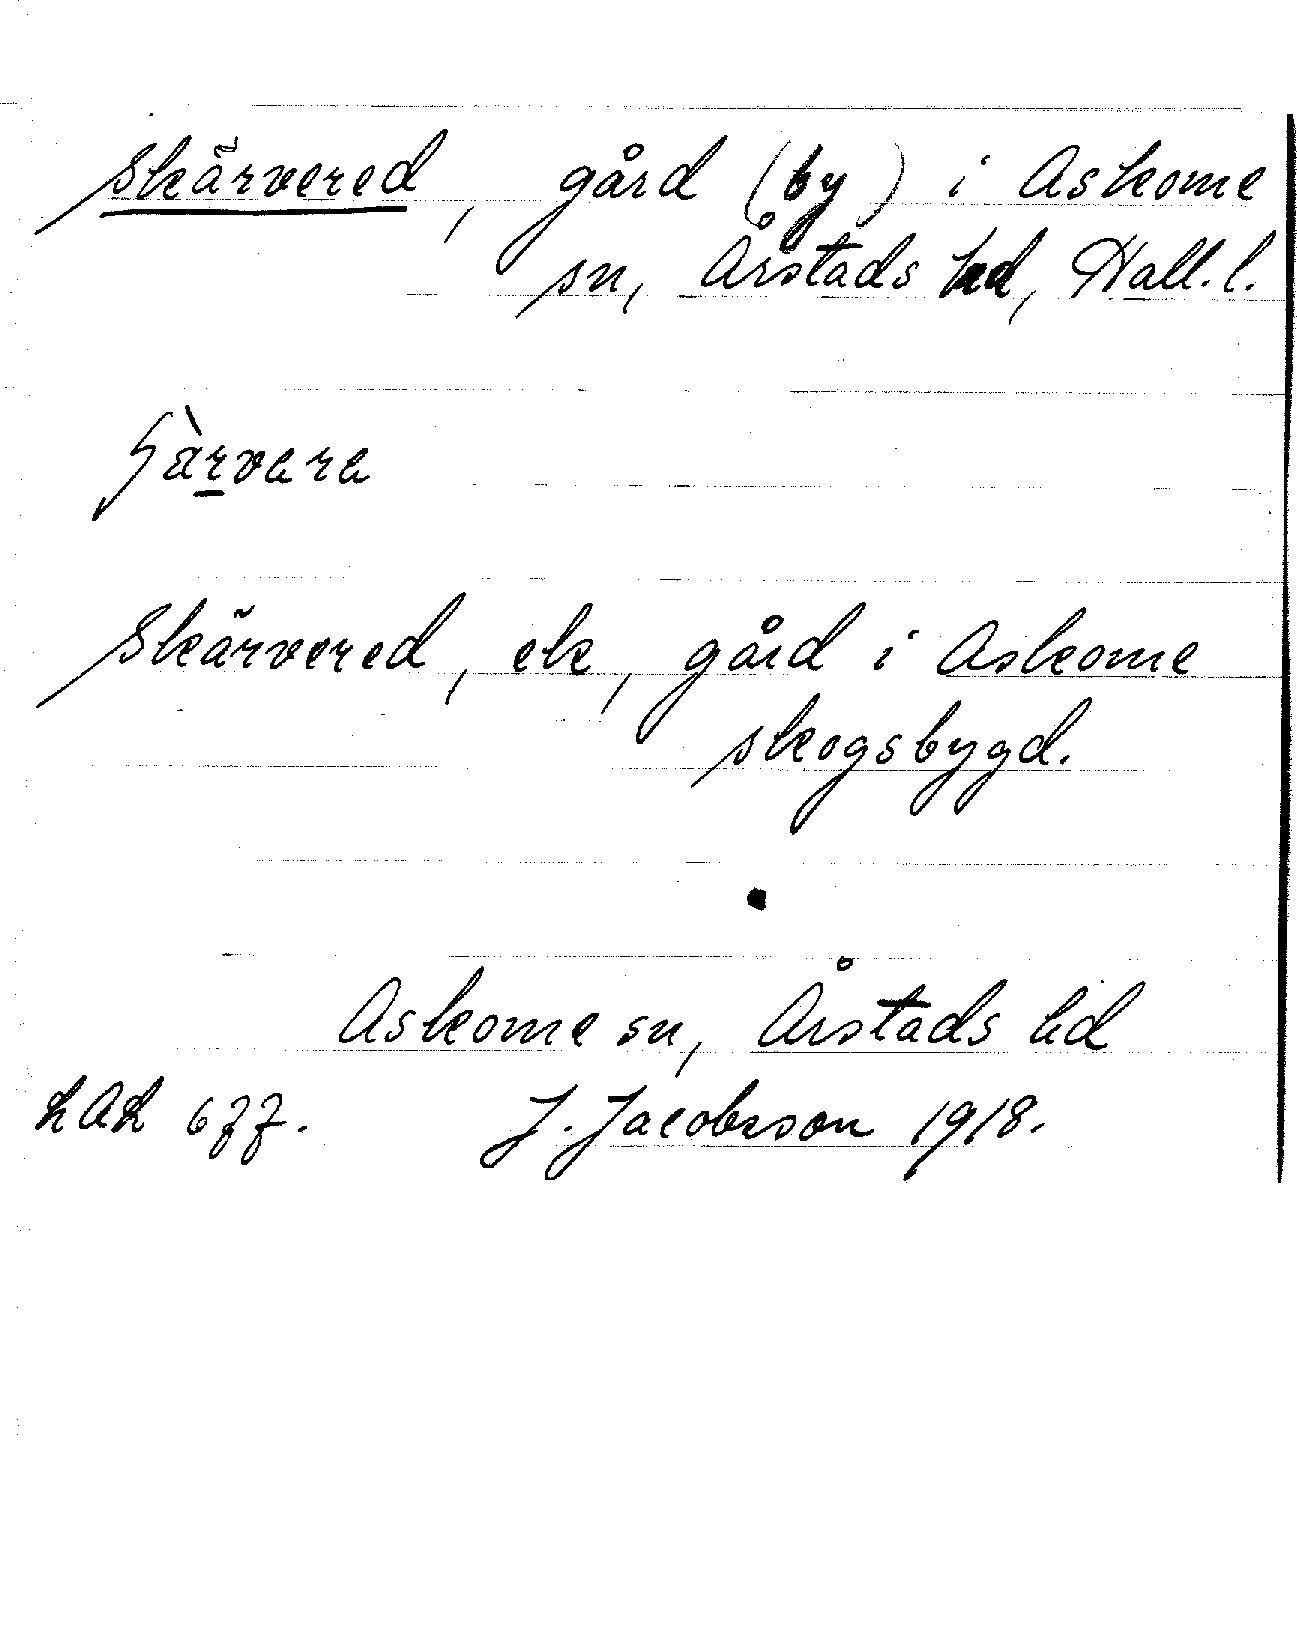 Skärvered, gård (by) i Askome
sn, Årstads hd, Hall. l.
Skärvered, ek, gård i Askome
skogsbygd.
Askome sn, Årstads hd
LAH 677. J. Jacobsson 1918.